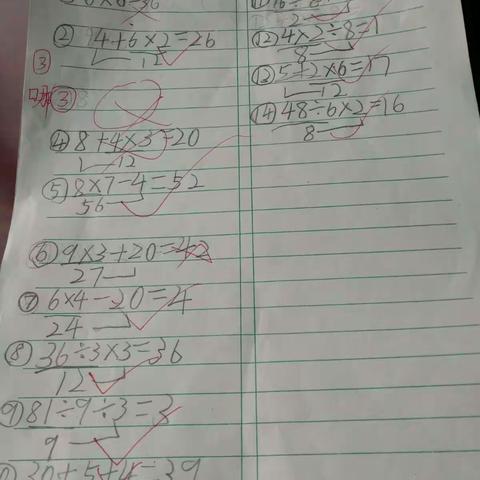 ② 14+6×2=26
12
③
③
④ 8+4×3=20
12
⑤ 8×7-4=52
56
⑥ 9×3+20=42
27
⑦ 6×4-20=4
24
⑧ 36÷3×3=36
12
⑨ 81÷9÷3=3
9
30+5+4=39
⑫ 4×2÷8=1
8
⑬ 5+2×6=17
12
⑭ 48÷6×2=16
8